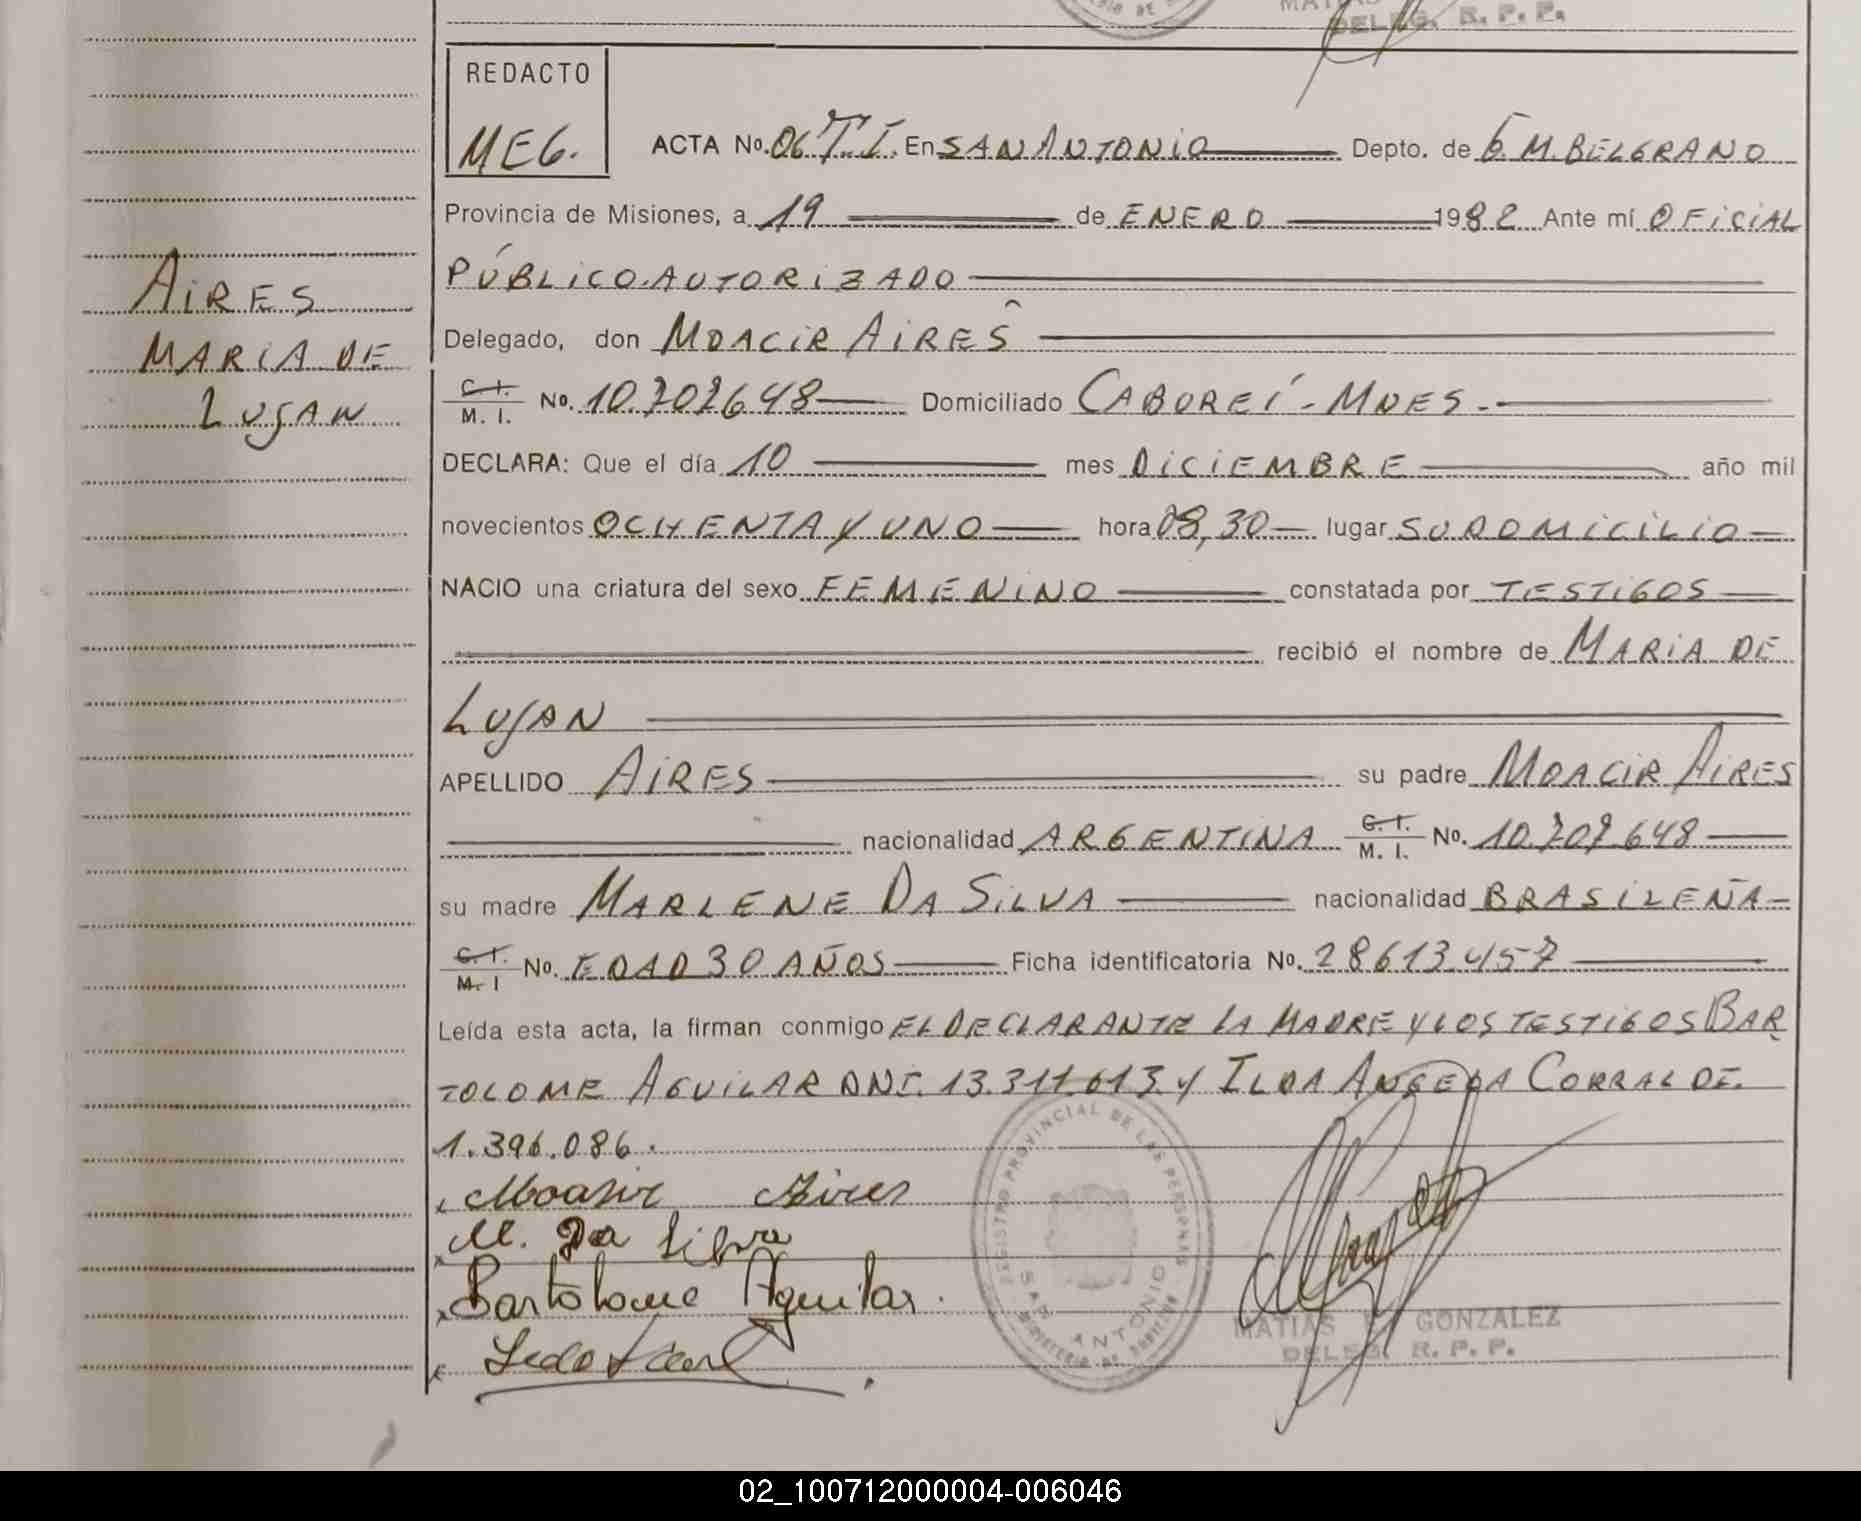 DELEG. R. P. P.
REDACTO
MEG.
ACTA No. 06 T. I. En SAN ANTONIO Depto. de G. M. BELGRANO
Provincia de Misiones, a 19 de ENERO 1982 Ante mí OFICIAL
PÚBLICO AUTORIZADO
AIRES
MARIA DE
LUJAN
Delegado, don MOACIR AIRES
C. I.
M. I. No. 10.707.648 Domiciliado CABOREÍ - MNES.-
DECLARA: Que el día 10 mes DICIEMBRE año mil
novecientos OCHENTA Y UNO hora 08,30 lugar SU DOMICILIO
NACIO una criatura del sexo FEMENINO constatada por TESTIGOS
recibió el nombre de MARIA DE
LUJAN
APELLIDO AIRES su padre MOACIR AIRES
nacionalidad ARGENTINA C. I. M. I. No. 10.707.648
su madre MARLENE DA SILVA nacionalidad BRASILEÑA
C. I. M. I No. EDAD 30 AÑOS Ficha identificatoria No. 28613.457
Leída esta acta, la firman conmigo EL DECLARANTE LA MADRE Y LOS TESTIGOS BAR
TOLOME AGUILAR DNI. 13.311.613 y ILDA ANGELA CORRAL DE.
1.396.086.
Moasir Aires
M. Da Silva
Bartolome Aguilar.
REGISTRO PROVINCIAL DE LAS PERSONAS
SAN ANTONIO
MATIAS GONZALEZ
DELEG. R. P. P.
02_100712000004-006046